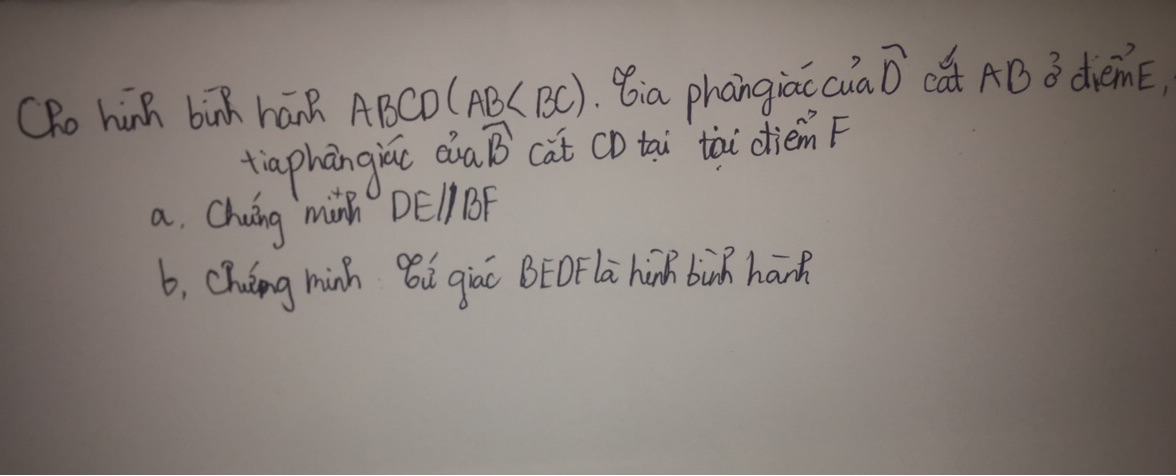 Cho hình bình hành ABCD (AB < BC). Tia phân giác của D̂ cắt AB ở điểm E,
tia phân giác của B̂ cắt CD tại tại điểm F
a. Chứng minh DE // BF
b, Chứng minh Tứ giác BEDF là hình bình hành